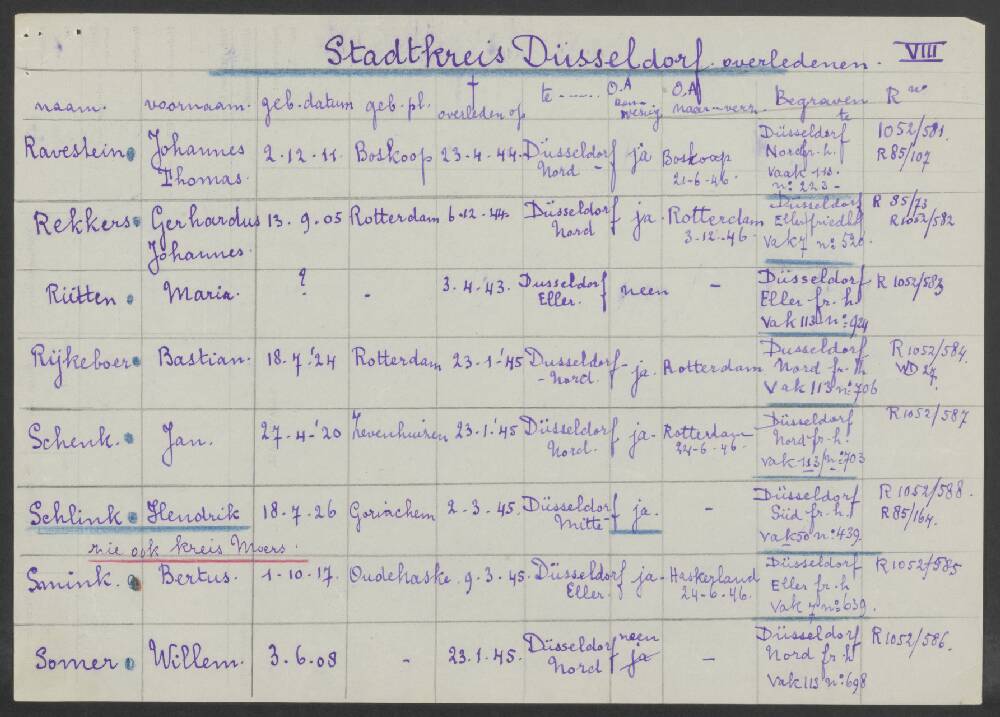 Stadtkreis Düsseldorf. overledenen. VIII
naam. voornaam. geb. datum geb. pl. † overleden op te ------ O.A aanwezig O.A naar verz. Begraven te R no
Ravestein Johannes Thomas. 2.12.11. Boskoop 23-4-44. Düsseldorf Nord - ja Boskoop 21-6-46. Düsseldorf Nordfr.h. Vaak 113. no: 223- 1052/581. R85/107
Rekkers Gerhardus Johannes. 13.9.05 Rotterdam 6-12-44. Düsseldorf Nord ja. Rotterdam 3-12-46. Düsseldorf Ellerfriedh vak 7 no: 520. R 85/73 R1052/582
Rütten Maria. ? - 3.4.'43. Dusseldorf Eller. neen - Düsseldorf Eller fr.h Vak 113 no: 924 R 1052/583
Rijkeboer Bastian. 18.7.'24 Rotterdam 23-1-'45 Dusseldorf - Nord. - ja. Rotterdam Dusseldorf Nord fr.h Vak 113 no: 706 R1052/584. WD 27.
Schenk. Jan. 27-4-'20 Zevenhuizen 23.1.'45 Düsseldorf Nord. ja. Rotterdam 24-6-46. Düsseldorf Nord-fr-h. vak 113/no: 703 R1052/587
Schlink Hendrik 18.7.26 Gorinchem 2.3.45. Düsseldorf Mitte- ja. - Düsseldorf Süd fr.h. vak 50 no: 439. R 1052/588. R 85/164.
zie ook kreis Moers.
Smink. Bertus. 1-10-17. Oudehaske 9.3.45. Düsseldorf Eller. ja- Haskerland 24-6-46. Düsseldorf Eller fr.h Vak 7 no: 639. R1052/585
Somer Willem. 3.6.08 - 23.1.45. Düsseldorf Nord neen ja - Düsseldorf Nord fr.h Vak 113 no: 698 R1052/586.